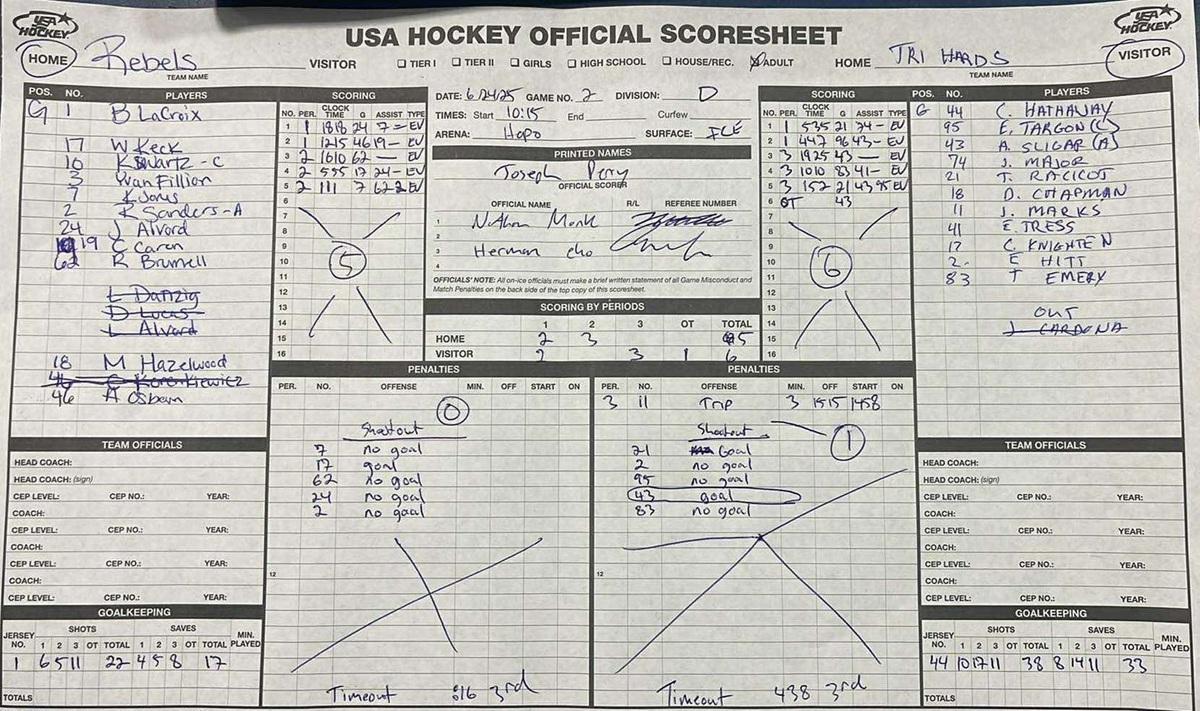 USA HOCKEY OFFICIAL SCORESHEET
USA HOCKEY
USA HOCKEY
HOME Rebels VISITOR
TEAM NAME
☐ TIER I ☐ TIER II ☐ GIRLS ☐ HIGH SCHOOL ☐ HOUSE/REC. ☒ ADULT
HOME TRI HARDS VISITOR
TEAM NAME
POS. NO. PLAYERS
G 1 B LaCroix
17 W Keck
10 K Swartz - C
3 J Van Fillion
7 K Jones
2 K Sanders - A
24 J Alvord
19 C Caren
62 R Brumell
L Danzig
D Lucas
L Alvard
18 M Hazelwood
46 A Osborn
SCORING
NO. PER. CLOCK TIME G ASSIST TYPE
1 1 1818 24 7 - EV
2 1 1215 46 19 - EV
3 2 1610 62 — EV
4 2 555 17 24 - EV
5 2 111 7 62 2 EV
6
7
8
9
10
11
12
13
14
15
16
5
DATE: 6/24/25 GAME NO. 2 DIVISION: D
TIMES: Start 10:15 End Curfew
ARENA: Hapo SURFACE: ICE
PRINTED NAMES
Joseph Perry
OFFICIAL SCORER
OFFICIAL NAME R/L REFEREE NUMBER
1 Nathan Monk
2
3 Herman cho
4
OFFICIALS' NOTE: All on-ice officials must make a brief written statement of all Game Misconduct and
Match Penalties on the back side of the top copy of this scoresheet.
SCORING BY PERIODS
1 2 3 OT TOTAL
HOME 2 3 5
VISITOR 2 3 1 6
SCORING
NO. PER. CLOCK TIME G ASSIST TYPE
1 1 535 21 74 - EV
2 1 447 96 43 - EV
3 3 1925 43 — EV
4 3 1010 83 41 - EV
5 3 152 21 43 95 EV
6 OT 43
7
8
9
10
11
12
13
14
15
16
6
POS. NO. PLAYERS
G 44 C. HATHAWAY
95 E. TARGON (C)
43 A. SLIGAR (A)
74 J. MAJOR
21 T. RACICOT
18 D. CHAPMAN
11 J. MARKS
41 E. TRESS
17 C. KNIGHTEN
2 E HITT
83 T EMERY
OUT
J. CARDONA
PENALTIES
PER. NO. OFFENSE MIN. OFF START ON
0
Shootout
7 no goal
17 goal
62 no goal
24 no goal
2 no goal
12
Timeout :16 3rd
PENALTIES
PER. NO. OFFENSE MIN. OFF START ON
3 11 Trip 3 1515 1458
Shootout 1
21 Goal
2 no goal
95 no goal
43 goal
83 no goal
12
Timeout 438 3rd
TEAM OFFICIALS
HEAD COACH:
HEAD COACH: (sign)
CEP LEVEL: CEP NO.: YEAR:
COACH:
CEP LEVEL: CEP NO.: YEAR:
COACH:
CEP LEVEL: CEP NO.: YEAR:
COACH:
CEP LEVEL: CEP NO.: YEAR:
GOALKEEPING
JERSEY NO. SHOTS 1 2 3 OT TOTAL SAVES 1 2 3 OT TOTAL MIN. PLAYED
1 6 5 11 22 4 5 8 17
TOTALS
TEAM OFFICIALS
HEAD COACH:
HEAD COACH: (sign)
CEP LEVEL: CEP NO.: YEAR:
COACH:
CEP LEVEL: CEP NO.: YEAR:
COACH:
CEP LEVEL: CEP NO.: YEAR:
COACH:
CEP LEVEL: CEP NO.: YEAR:
GOALKEEPING
JERSEY NO. SHOTS 1 2 3 OT TOTAL SAVES 1 2 3 OT TOTAL MIN. PLAYED
44 10 17 11 38 8 14 11 33
TOTALS